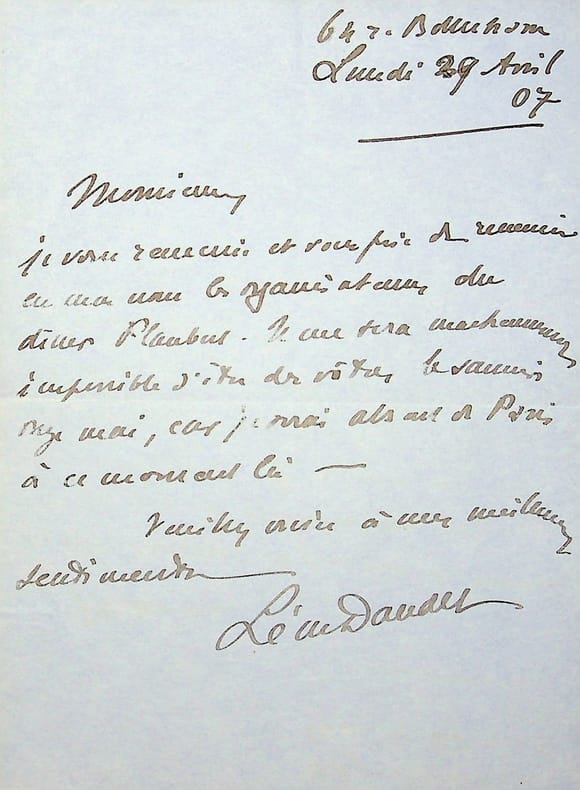 Lundi 29 Avril
07
Monsieur,
je vous remercie et vous prie de remercier
en mon nom les organisateurs du
dîner Flaubert. Il me sera
impossible d'être des vôtres le samedi
onze mai, car je serai absent de Paris
à ce moment là —
Veuillez croire à mes meilleurs
sentiments
Léon Daudet